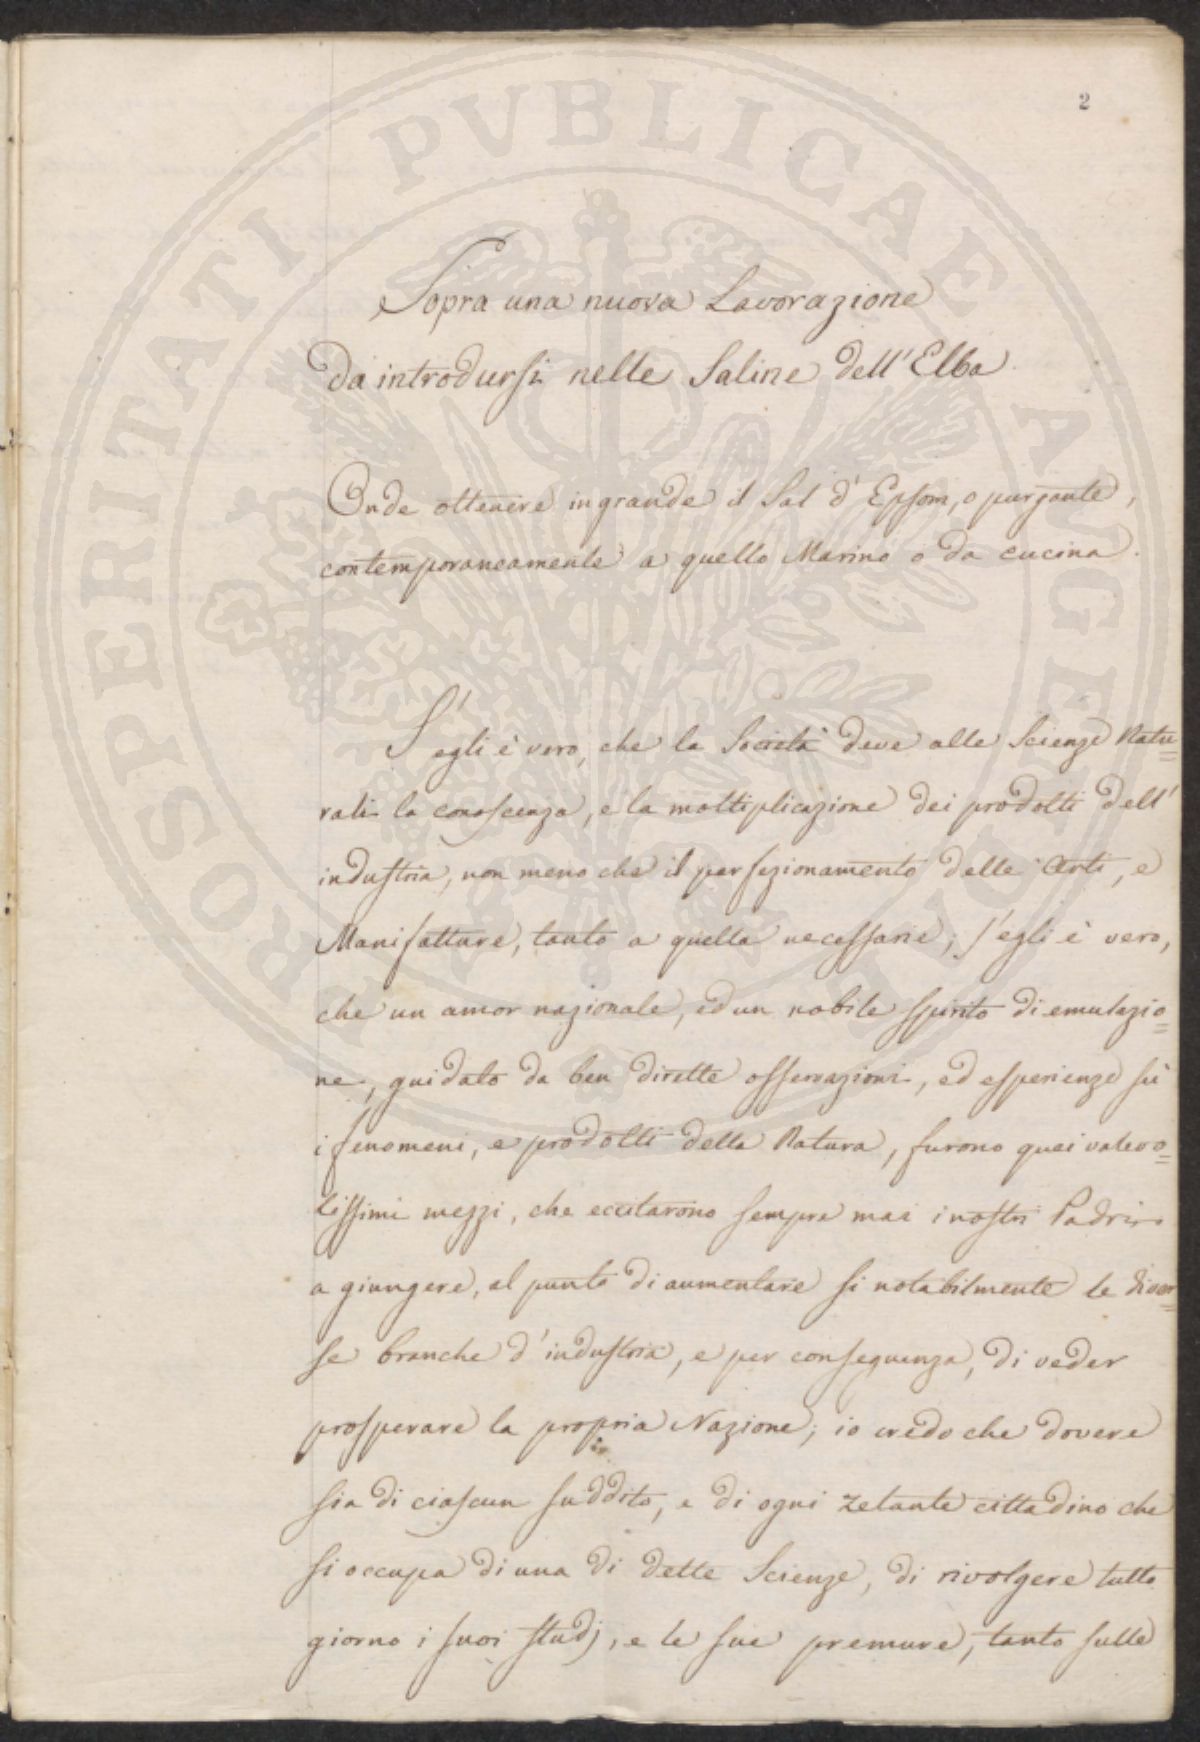 2
Sopra una nuova Lavorazione
da introdursi nelle Saline dell'Elba
Onde ottenere in grande il Sal d'Epsom, o purgante,
contemporaneamente a quello Marino o da cucina.
S'egli è vero, che la Società deve alle Scienze Natu=
rali la conoscenza, e la moltiplicazione dei prodotti dell'
industria, non meno che il perfezionamento delle Arti, e
Manifatture, tanto a quella necessarie; s'egli è vero,
che un amor nazionale, ed un nobile spirito di emulazio=
ne, guidato da ben dirette osservazioni, ed esperienze sù
i fenomeni, e prodotti della Natura, furono quei valevo=
lissimi mezzi, che eccitarono sempre mai i nostri Padri
a giungere, al punto di aumentare si notabilmente le diver=
se branche d'industria, e per conseguenza, di veder
prosperare la propria Nazione; io credo che dovere
sia di ciascun suddito, e di ogni zelante cittadino che
si occupa di una di dette Scienze, di rivolgere tutto
giorno i suoi studj, e le sue premure, tanto sulle
PROSPERITATI PVBLICAE AVGENDAE